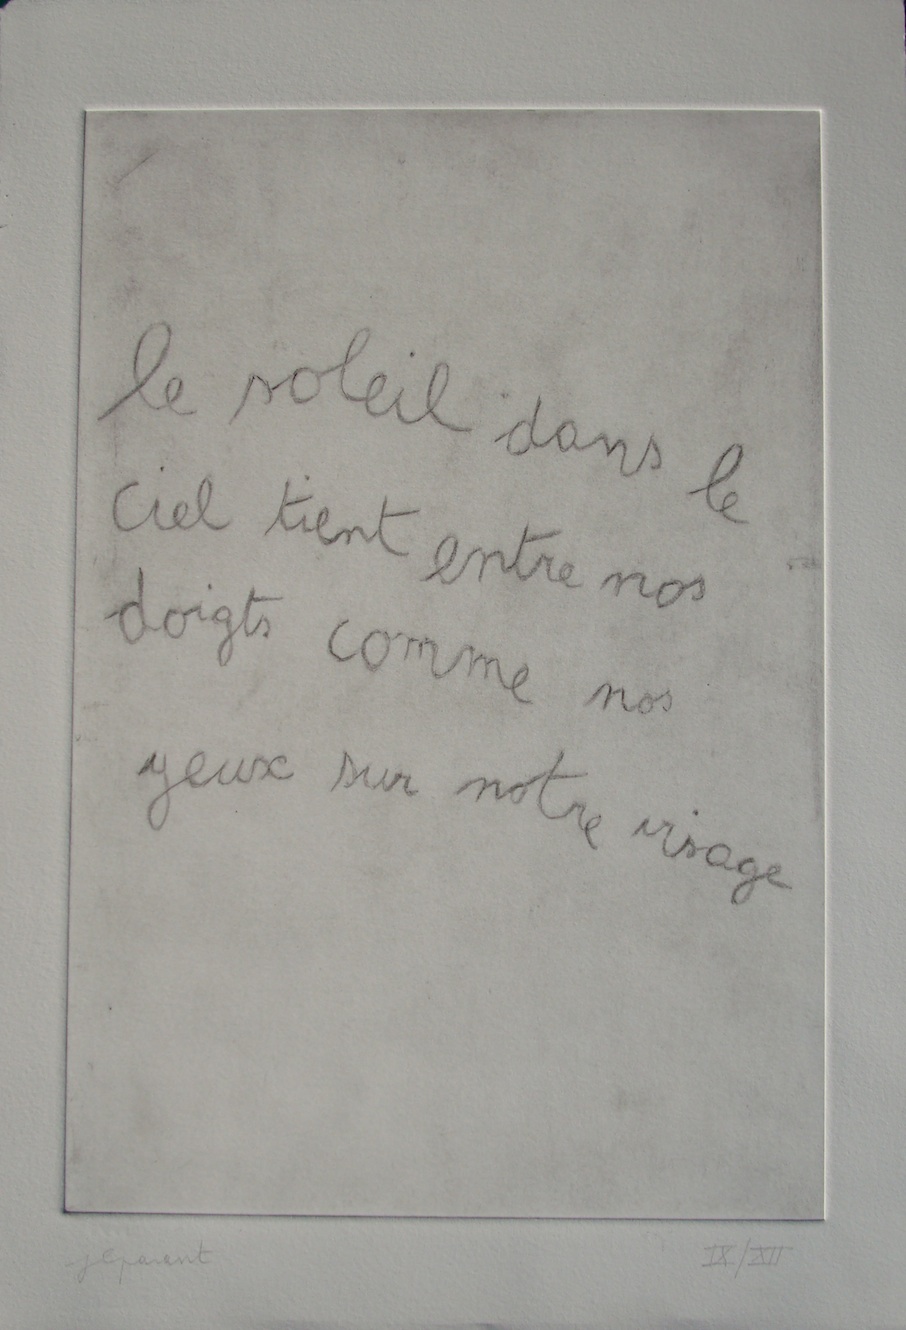 le soleil dans le
ciel tient entre nos
doigts comme nos
yeux sur notre visage
jlparent
IX/XII